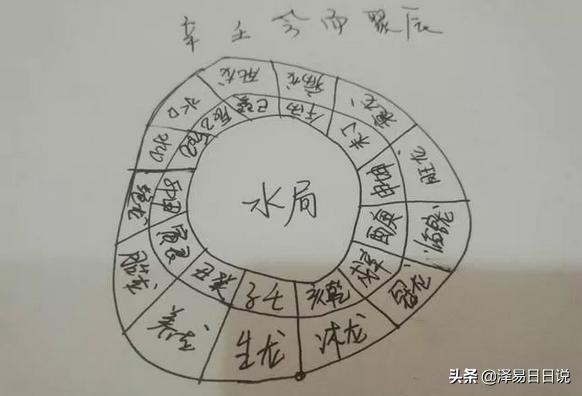 辛壬会而聚辰
死龙
病龙
衰龙
旺龙
冠龙
沐龙
生龙
养龙
胎龙
绝龙
水口
水口
巳巽
午丙
未丁
申坤
酉庚
戌辛
亥乾
子壬
寅艮
水局
头条 @泽易日日说